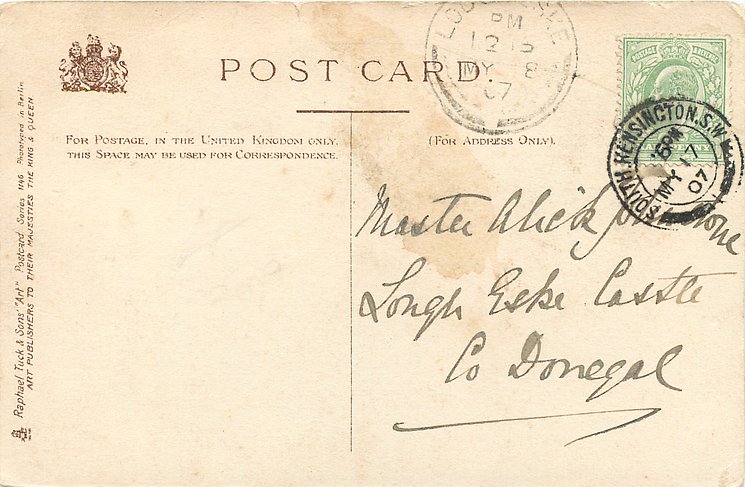 POST CARD
FOR POSTAGE, IN THE UNITED KINGDOM ONLY,
THIS SPACE MAY BE USED FOR CORRESPONDENCE.
(FOR ADDRESS ONLY).
PM
MY 8
07
POSTAGE
SOUTH KENSINGTON. S.W
MY 17
07
Master Alick
Lough Eske Castle
Co Donegal
Raphael Tuck & Sons' "Art" Postcard Series 1146 Photogravure in Berlin
ART PUBLISHERS TO THEIR MAJESTIES THE KING & QUEEN.